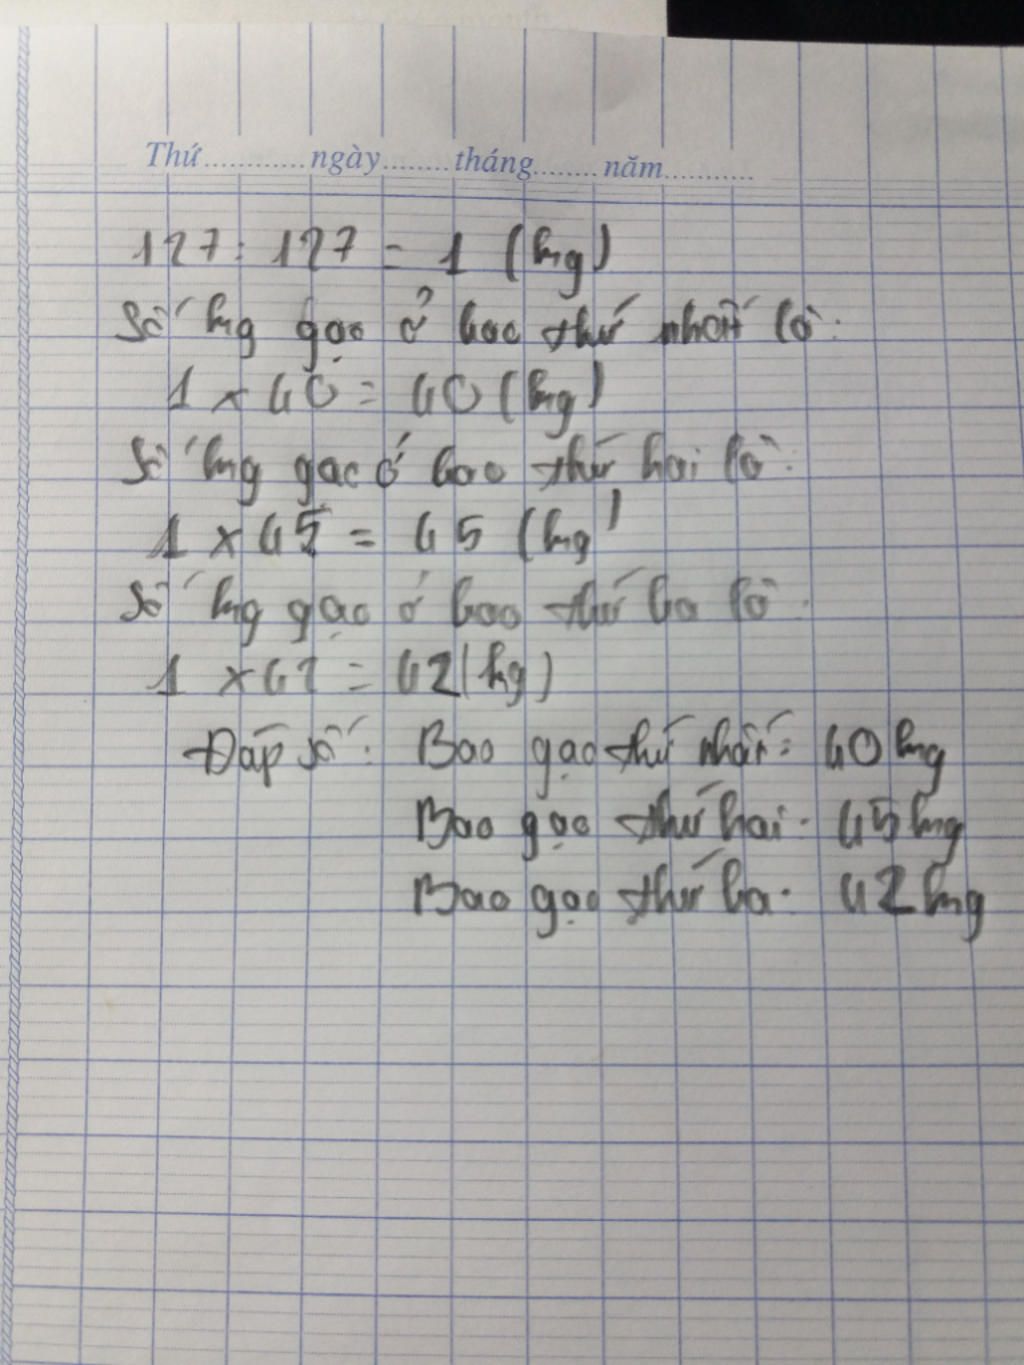 Thứ............ngày........tháng........năm...........
127 : 127 = 1 (kg)
Số kg gạo ở bao thứ nhất là:
1 x 40 = 40 (kg)
Số kg gạo ở bao thứ hai là:
1 x 45 = 45 (kg)
Số kg gạo ở bao thứ ba là:
1 x 42 = 42 (kg)
Đáp số: Bao gạo thứ nhất: 40 kg
Bao gạo thứ hai: 45 kg
Bao gạo thứ ba: 42 kg